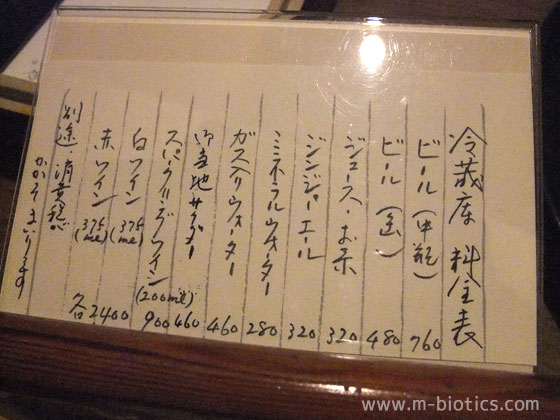 冷蔵庫 料金表
ビール (中瓶) 760
ビール (缶) 480
ジュース・お茶 320
ジンジャーエール 320
ミネラルウォーター 280
ガス入りウォーター 460
御当地サイダー 460
スパークリングワイン (200ml) 900
白ワイン (375ml)
赤ワイン (375ml) 各2400
別途・消費税が
かかりまいります
www.m-biotics.com